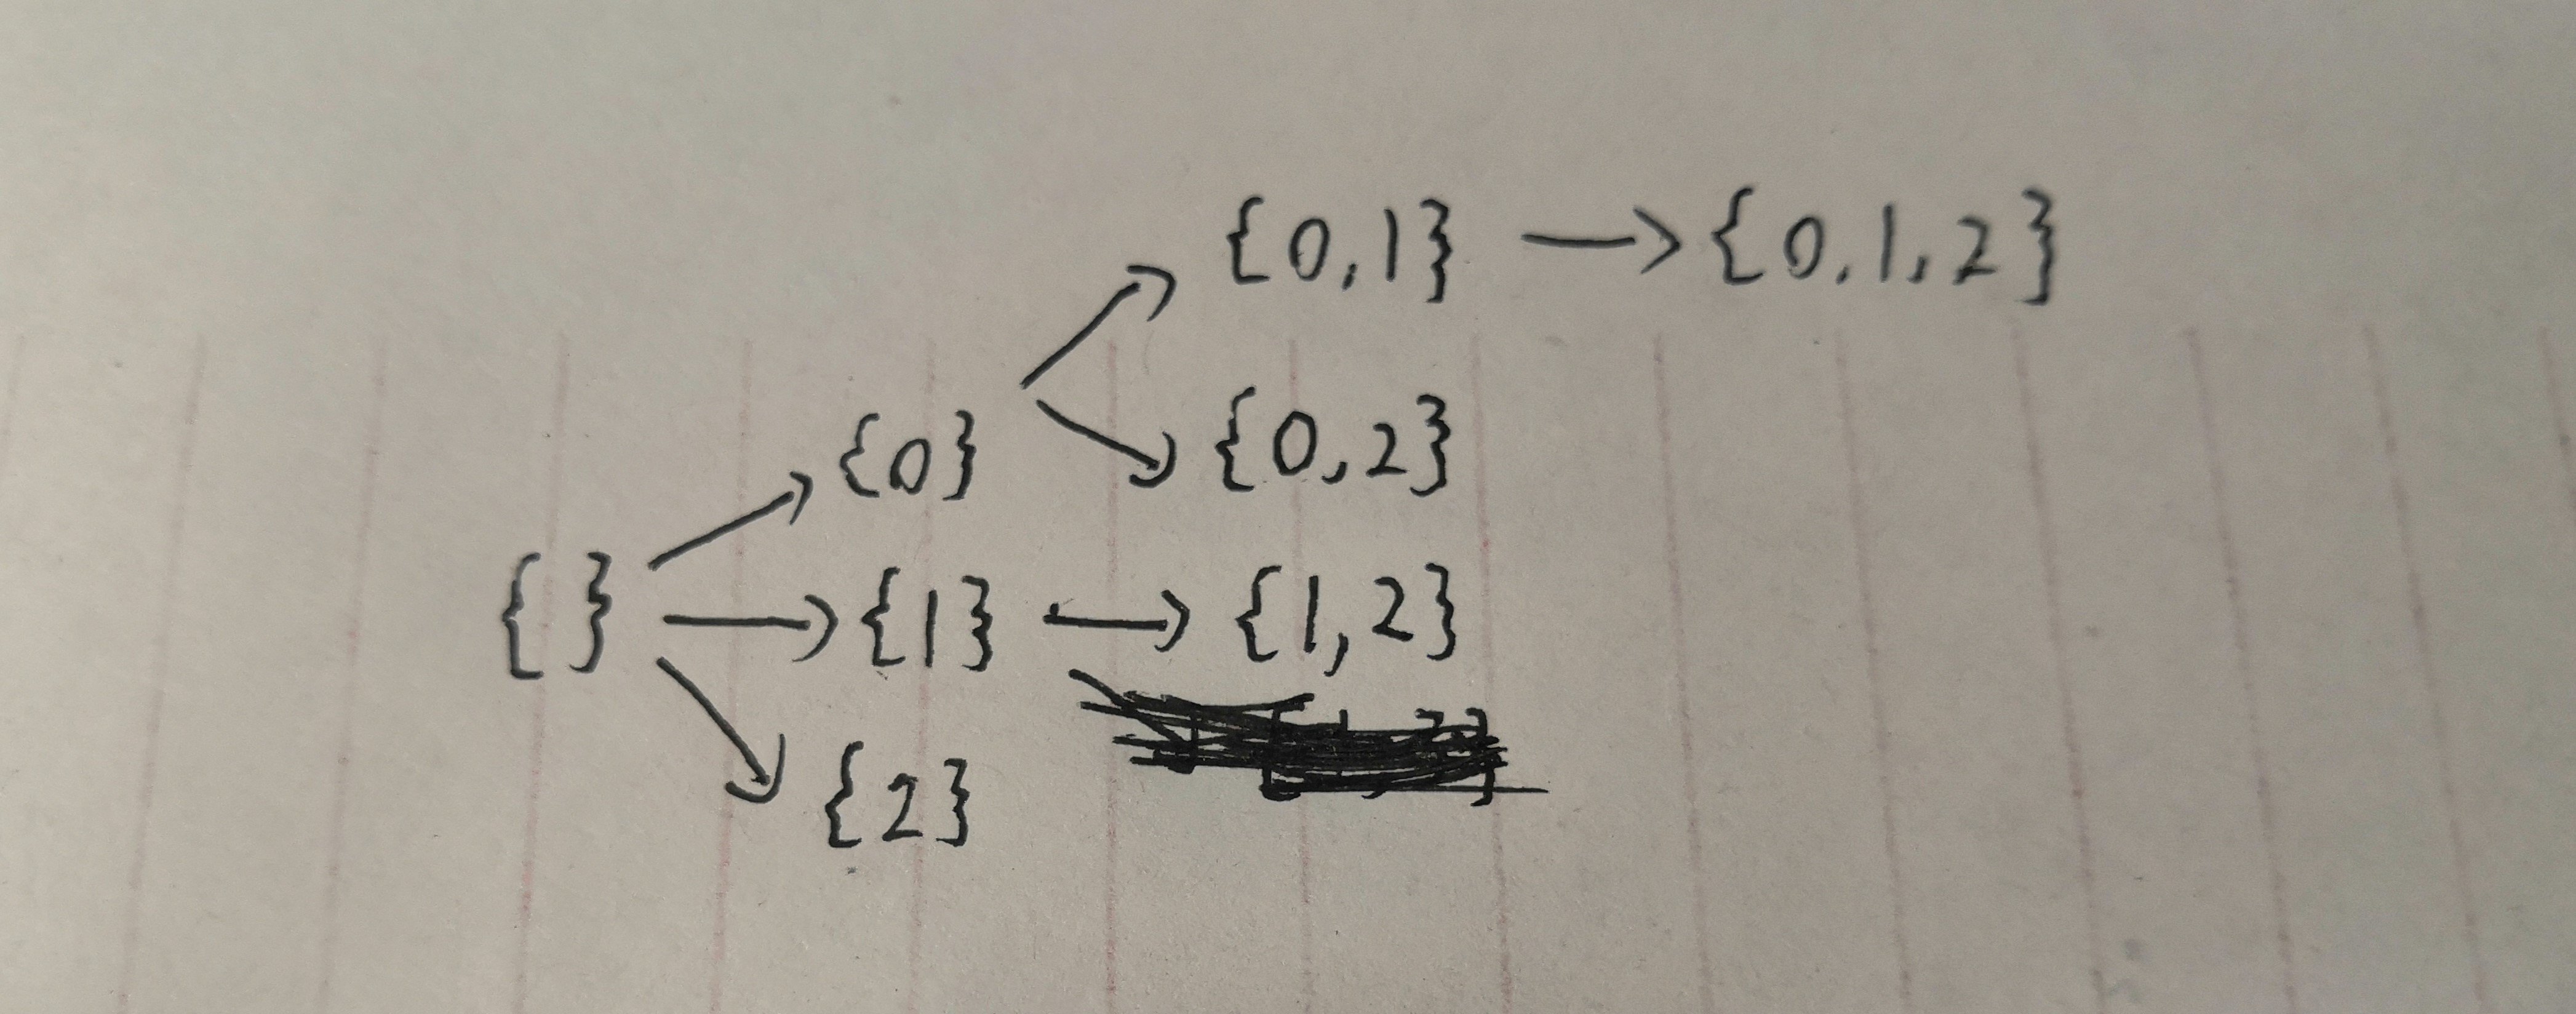 {0,1} → {0,1,2}
{0} {0,2}
{ } → {1} → {1,2}
{2}